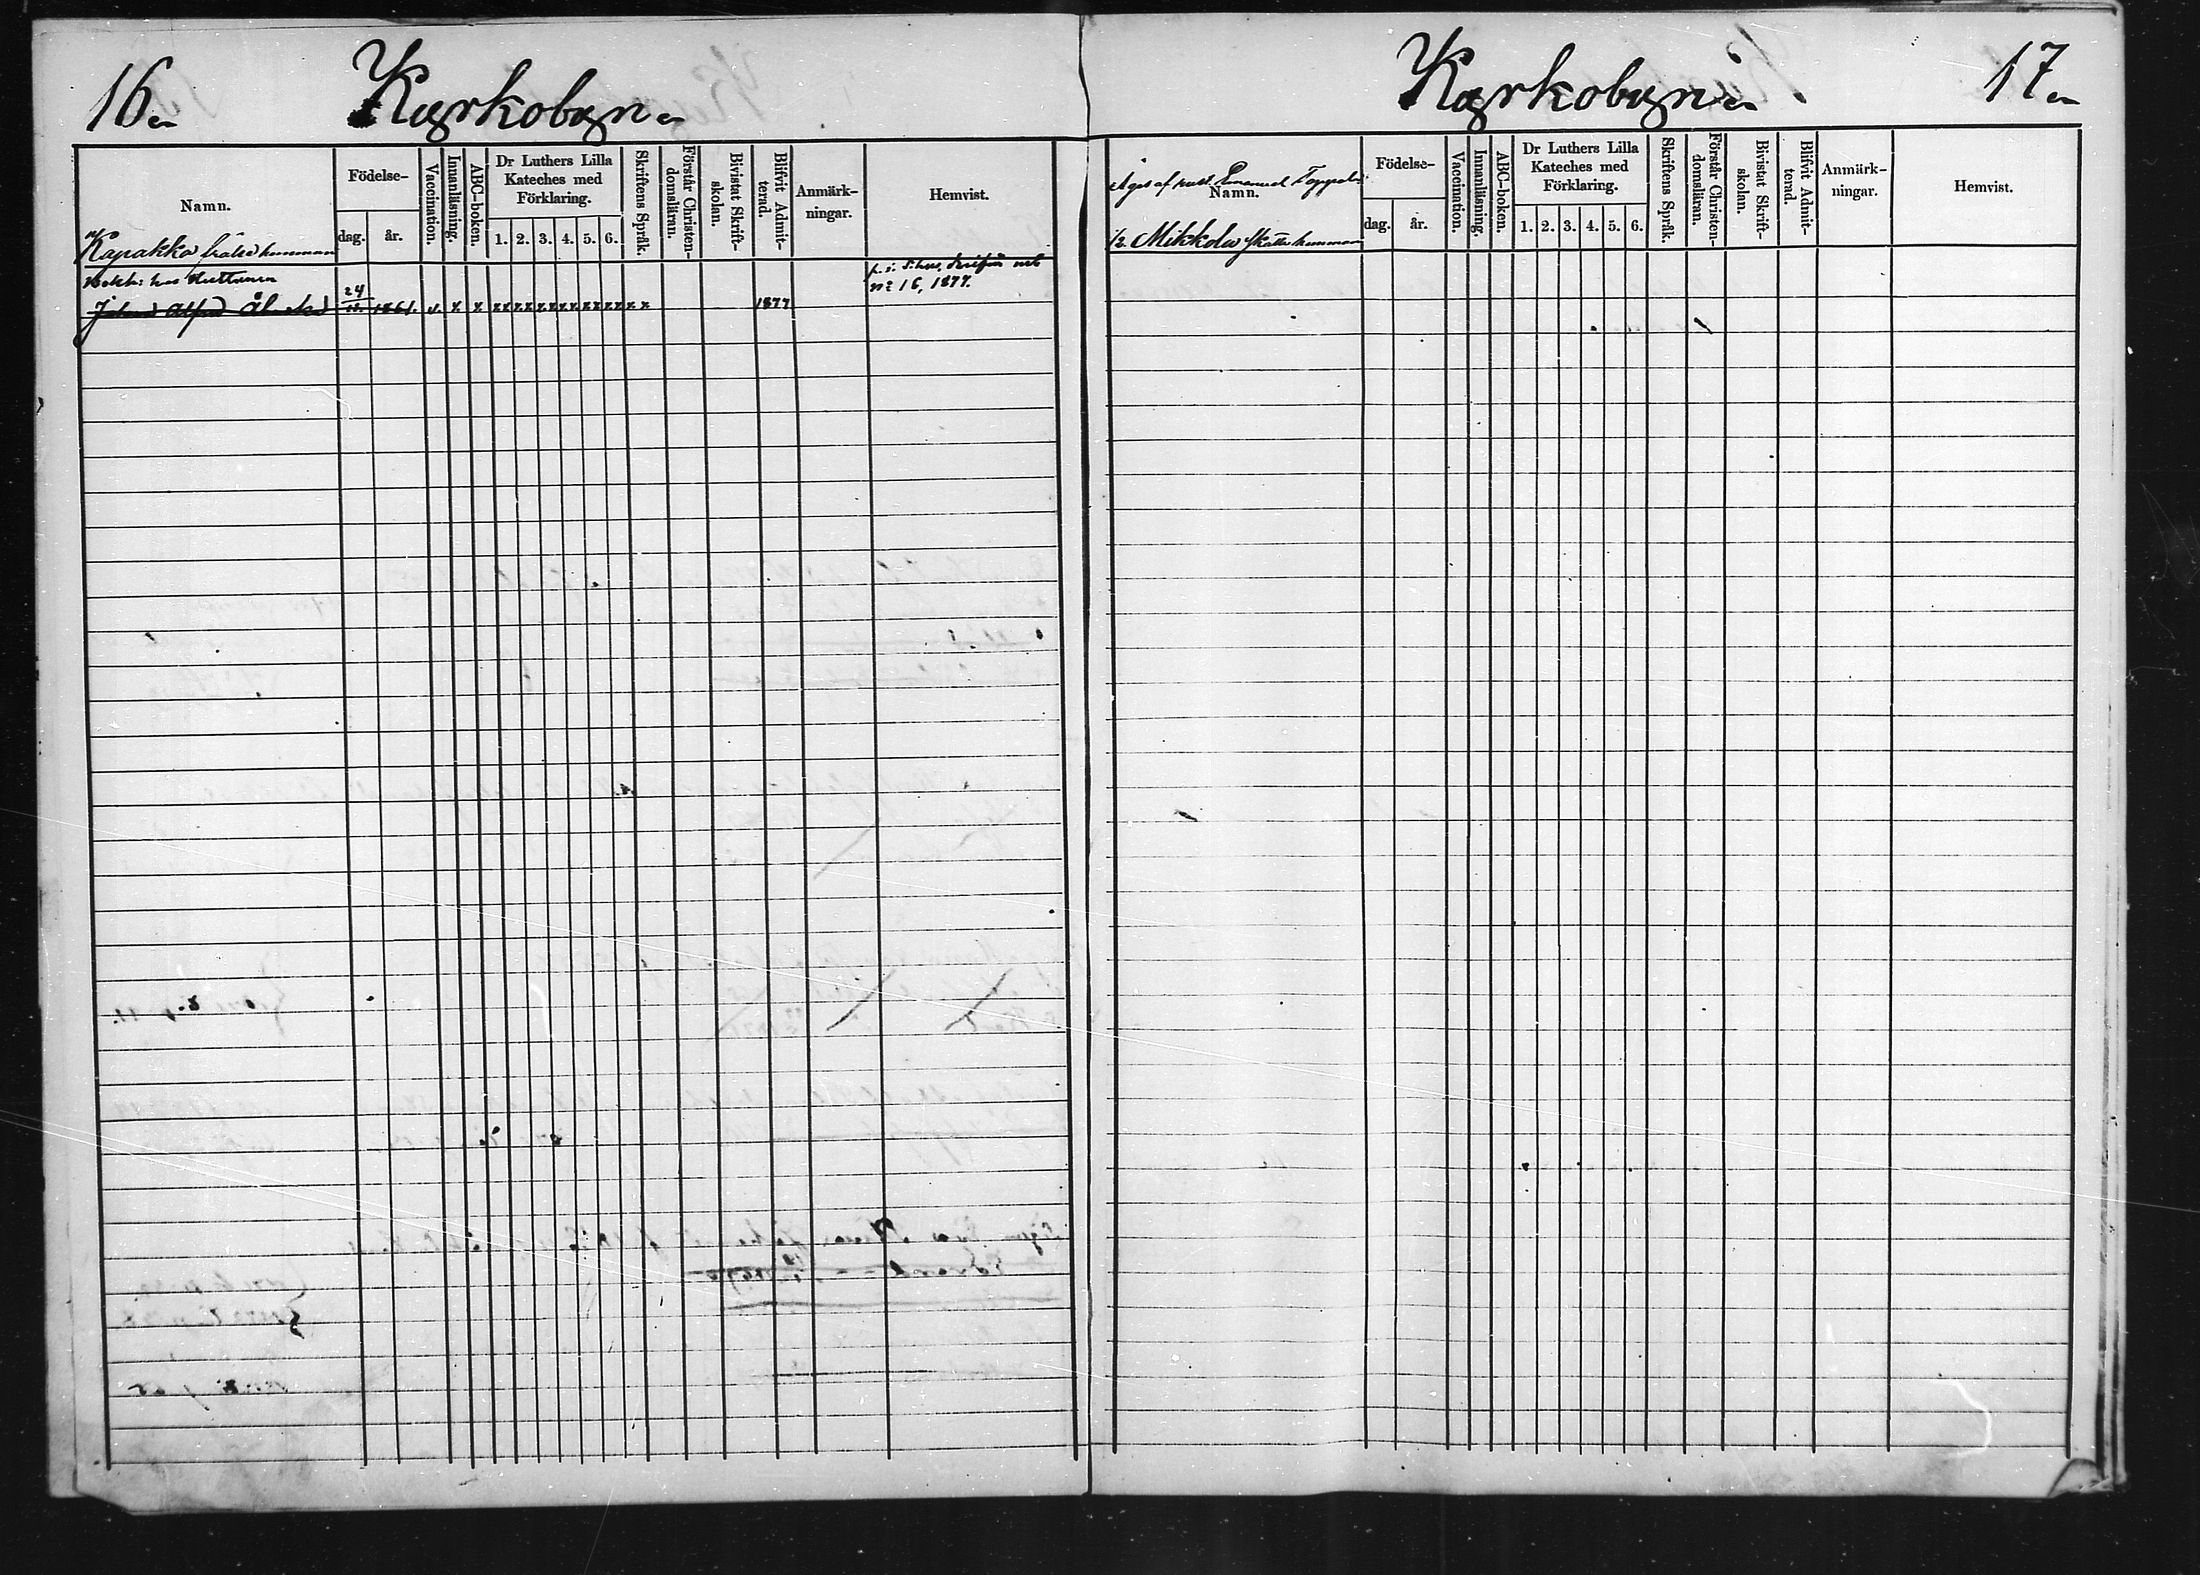 16
Kyrkobyn
Namn.
Födelse-
dag.
år.
Vaccination.
Innanläsning.
ABC-boken.
Dr Luthers Lilla
Kateches med
Förklaring.
1. 2. 3. 4. 5. 6.
Skriftens Språk.
Förstår Christen-
domsläran.
Bivistat Skrift-
skolan.
Blifvit Admit-
terad.
Anmärk-
ningar.
Hemvist.
Kapakka frälse hemman
hos Huttunen
Johan Alfred 24 1861. v. x x xx xx xx xx xx xx xx 1877
nº 16, 1877.
Kyrkobyn
17
Äges af Emanuel Toppola
Namn.
Födelse-
dag.
år.
Vaccination.
Innanläsning.
ABC-boken.
Dr Luthers Lilla
Kateches med
Förklaring.
1. 2. 3. 4. 5. 6.
Skriftens Språk.
Förstår Christen-
domsläran.
Bivistat Skrift-
skolan.
Blifvit Admit-
terad.
Anmärk-
ningar.
Hemvist.
1/2 Mikkola Skatte hemman